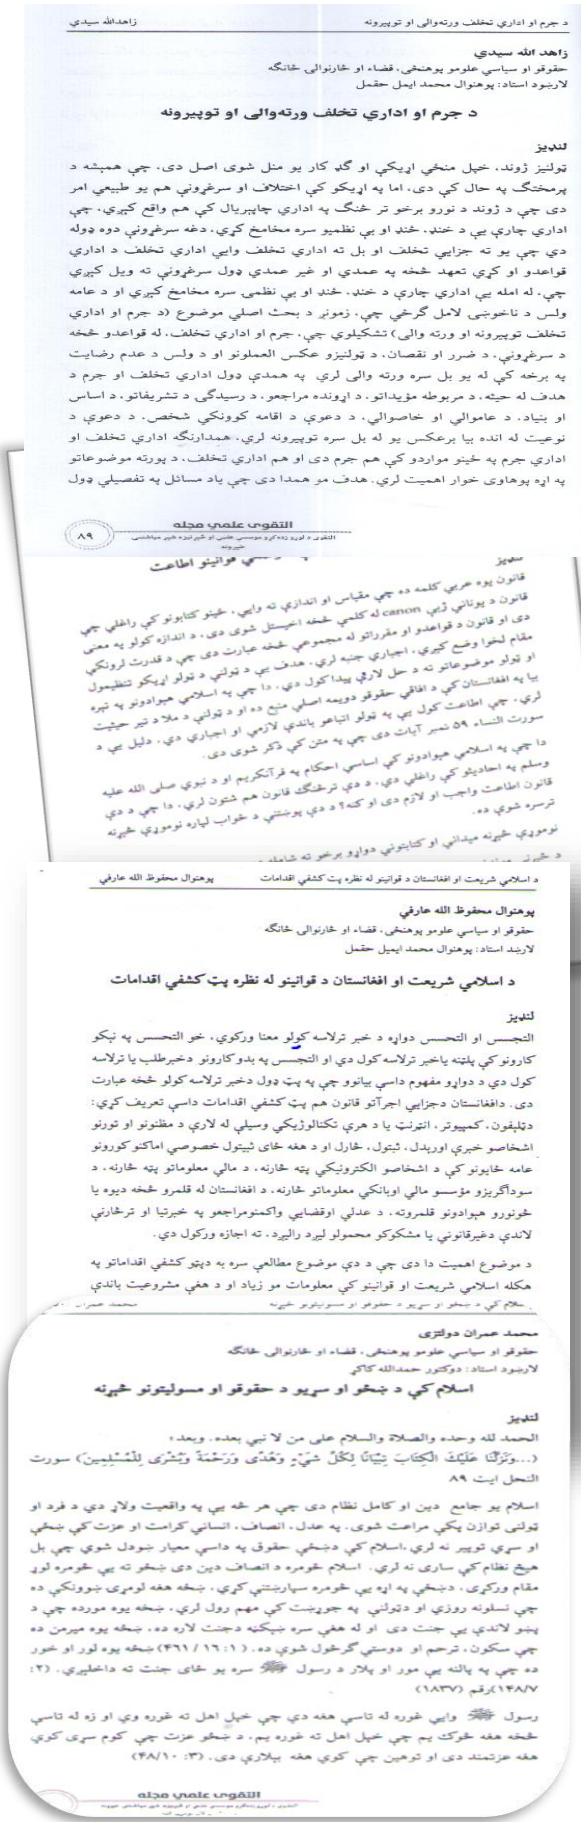 د جرم او اداري تخلف ورته‌والی او توپیرونه زاهدالله سیدي
زاهد الله سیدي
حقوقو او سیاسي علومو پوهنځی، قضاء او څارنوالی څانګه
لارښود استاد: پوهنوال محمد ایمل حقمل
د جرم او اداري تخلف ورته‌والی او توپیرونه
لنډیز
ټولنیز ژوند، خپل منځي اړیکې او ګډ کار یو منل شوی اصل دی، چې همېشه د
پرمختګ په حال کې دی، اما په اړیکو کې اختلاف او سرغړونې هم یو طبیعي امر
دی چې د ژوند د نورو برخو تر څنګ په اداري چاپېریال کې هم واقع کېږي، چې
اداري چارې یې د خنډ، ځنډ او بې نظمیو سره مخامخ کړي، دغه سرغړونې دوه ډوله
دي چې یو ته جزایي تخلف او بل ته اداري تخلف وایي اداري تخلف د اداري
قواعدو او کړي تعهد څخه په عمدي او غیر عمدي ډول سرغړونې ته ویل کېږي
چې، له امله یې اداري چارې د خنډ، ځنډ او بې نظمۍ سره مخامخ کېږي او د عامه
ولس د ناخوښۍ لامل ګرځي چې، زمونږ د بحث اصلي موضوع (د جرم او اداري
تخلف توپیرونه او ورته والی) تشکیلوي چې، جرم او اداري تخلف، له قواعدو څخه
د سرغړونې، د ضرر او نقصان، د ټولنیزو عکس العملونو او د ولس د عدم رضایت
په برخه کې له یو بل سره ورته والی لري په همدې ډول اداري تخلف او جرم د
هدف له حیثه، د مربوطه مؤیداتو، د اړونده مراجعو، د رسیدګی د تشریفاتو، د اساس
او بنیاد، د عاموالي او خاصوالي، د دعوې د اقامه کوونکي شخص، د دعوې د
نوعیت له انده بیا برعکس یو له بل سره توپیرونه لري، همدارنګه اداري تخلف او
اداري جرم په ځینو مواردو کې هم جرم دی او هم اداري تخلف، د پورته موضوعاتو
په اړه پوهاوی خوار اهمیت لري، هدف مو همدا دی چې یاد مسائل په تفصیلي ډول
التقوی علمي مجله
۸۹
لنډیز
قانون یوه عربي کلمه ده چې مقیاس او اندازې ته وایي، ځینو کتابونو کې راغلي چې
قانون د یوناني ژبې canon له کلمې څخه اخیستل شوی دی، د اندازه کولو په معنی
دی او قانون د قواعدو او مقرراتو له مجموعې څخه عبارت دی چې د قدرت لرونکي
مقام لخوا وضع کیږي، اجباري جنبه لري، هدف یې د ټولنې د ټولو اړیکو تنظیمول
او ټولو موضوعاتو ته د حل لارې پیدا کول دي، دا چې په اسلامي هېوادونو په تېره
بیا په افغانستان کې د افاقي حقوقو دویمه اصلي منبع ده او د ټولنې د ملا د تیر حیثیت
لري، چې اطاعت کول یې په ټولو اتباعو باندې لازمي او اجباري دي، دلیل یې د
سورت النساء ۵۹ نمبر آیات دی چې په متن کې ذکر شوی دی.
دا چې په اسلامي هېوادونو کې اساسي احکام په قرآنکریم او د نبوي صلی الله علیه
وسلم په احادیثو کې راغلي دي، د دې ترڅنګ قانون هم شتون لري، دا چې د دې
قانون اطاعت واجب او لازم دی او کنه؟ د دې پوښتنې د ځواب لپاره نوموړې څېړنه
ترسره شوې ده.
نوموړې څېړنه میداني او کتابتونې دواړو برخو ته شامله
د اسلامي شریعت او افغانستان د قوانینو له نظره پټ کشفي اقدامات پوهنوال محفوظ الله عارفي
پوهنوال محفوظ الله عارفي
حقوقو او سیاسي علومو پوهنځی، قضاء او څارنوالی څانګه
لارښد استاد: پوهنوال محمد ایمیل حقمل
د اسلامي شریعت او افغانستان د قوانینو له نظره پټ کشفي اقدامات
لنډیز
التجسس او التحسس دواړه د خبر ترلاسه کولو معنا ورکوي، خو التحسس په نېکو
کارونو کې پلټنه یاخبر ترلاسه کول دي او التجسس په بدو کارونو دخبرطلب یا ترلاسه
کول دي د دواړو مفهوم داسې بیانوو چې په پټ ډول دخبر ترلاسه کولو څخه عبارت
دی. دافغانستان دجزایي اجرآتو قانون هم پټ کشفي اقدامات داسې تعریف کړي:
دټلیفون، کمپیوتر، انټرنټ یا د هرې تکنالوژیکي وسیلې له لارې د مظنونو او تورنو
اشخاصو خبرې اورېدل، ثبتول، څارل او د هغه ځای ثبتول خصوصي اماکنو کورونو
عامه ځایونو کې د اشخاصو الکترونیکي پټه څارنه، د مالي معلوماتو پټه څارنه، د
سوداګریزو مؤسسو مالي اوبانکي معلوماتو څارنه، د افغانستان له قلمرو څخه دیوه یا
څونورو هېوادونو قلمروته، د عدلي اوقضایي واکمنومراجعو په خبرتیا او ترڅارنې
لاندې دغیرقانوني یا مشکوکو محمولو لېږد رالېږد، ته اجازه ورکول دي.
د موضوع اهمیت دا دی چې د دې موضوع مطالعې سره به دپټو کشفي اقداماتو په
هکله اسلامي شریعت او قوانینو کې معلومات مو زیاد او د هغې مشروعیت باندې
اسلام کې د ښځو او سړیو د حقوقو او مسولیتونو څېړنه محمد عمران
محمد عمران دولتزی
حقوقو او سیاسي علومو پوهنځی، قضاء او څارنوالی څانګه
لارښود استاد: دوکتور حمدالله کاکړ
اسلام کې د ښځو او سړیو د حقوقو او مسولیتونو څېړنه
لنډیز
الحمد لله وحده والصلاة والسلام على من لا نبي بعده. وبعد؛
(...وَنَزَّلْنَا عَلَيْكَ الْكِتَابَ تِبْيَانًا لِكُلِّ شَيْءٍ وَهُدًى وَرَحْمَةً وَبُشْرَى لِلْمُسْلِمِينَ) سورت
النحل ایت ۸۹
اسلام یو جامع دین او کامل نظام دی چې هر څه یې په واقعیت ولاړ دي د فرد او
ټولنې توازن پکې مراعت شوی. په عدل، انصاف، انساني کرامت او عزت کې ښځې
او سړي توپیر نه لري،اسلام کې دښځې حقوق په داسې معیار ښودل شوي چې بل
هیڅ نظام کې ساری نه لري. اسلام څومره د انصاف دین دی ښځو ته یې څومره لوړ
مقام ورکړی، دښځې په اړه یې څومره سپارښتنې کړي، ښځه هغه لومړۍ ښوونکې ده
چې نسلونه روزي او دټولنې په جوړښت کې مهم رول لري، ښځه یوه مورده چې د
پښو لاندې یې جنت دی او له هغې سره ښیګڼه دجنت لاره ده، ښځه یوه میرمن ده
چې سکون، ترحم او دوستي ګرځول شوې ده. (۱: ۱۶ / ۴۶۱) ښځه یوه لور او خور
ده چې په پالنه یې مور او پلار د رسول ﷺ سره یو ځای جنت ته داخلیږي. (۲:
۱۴۸/۷)رقم (۱۸۳۷)
رسول ﷺ وایي غوره له تاسې هغه دي چې خپل اهل ته غوره وي او زه له تاسې
څخه هغه څوک یم چې خپل اهل ته غوره یم، د ښځو عزت چې کوم سړی کوي
هغه عزتمند دی او توهین چې کوي هغه بېلارې دی. (۳: ۴۸/۱۰)
التقوی علمي مجله